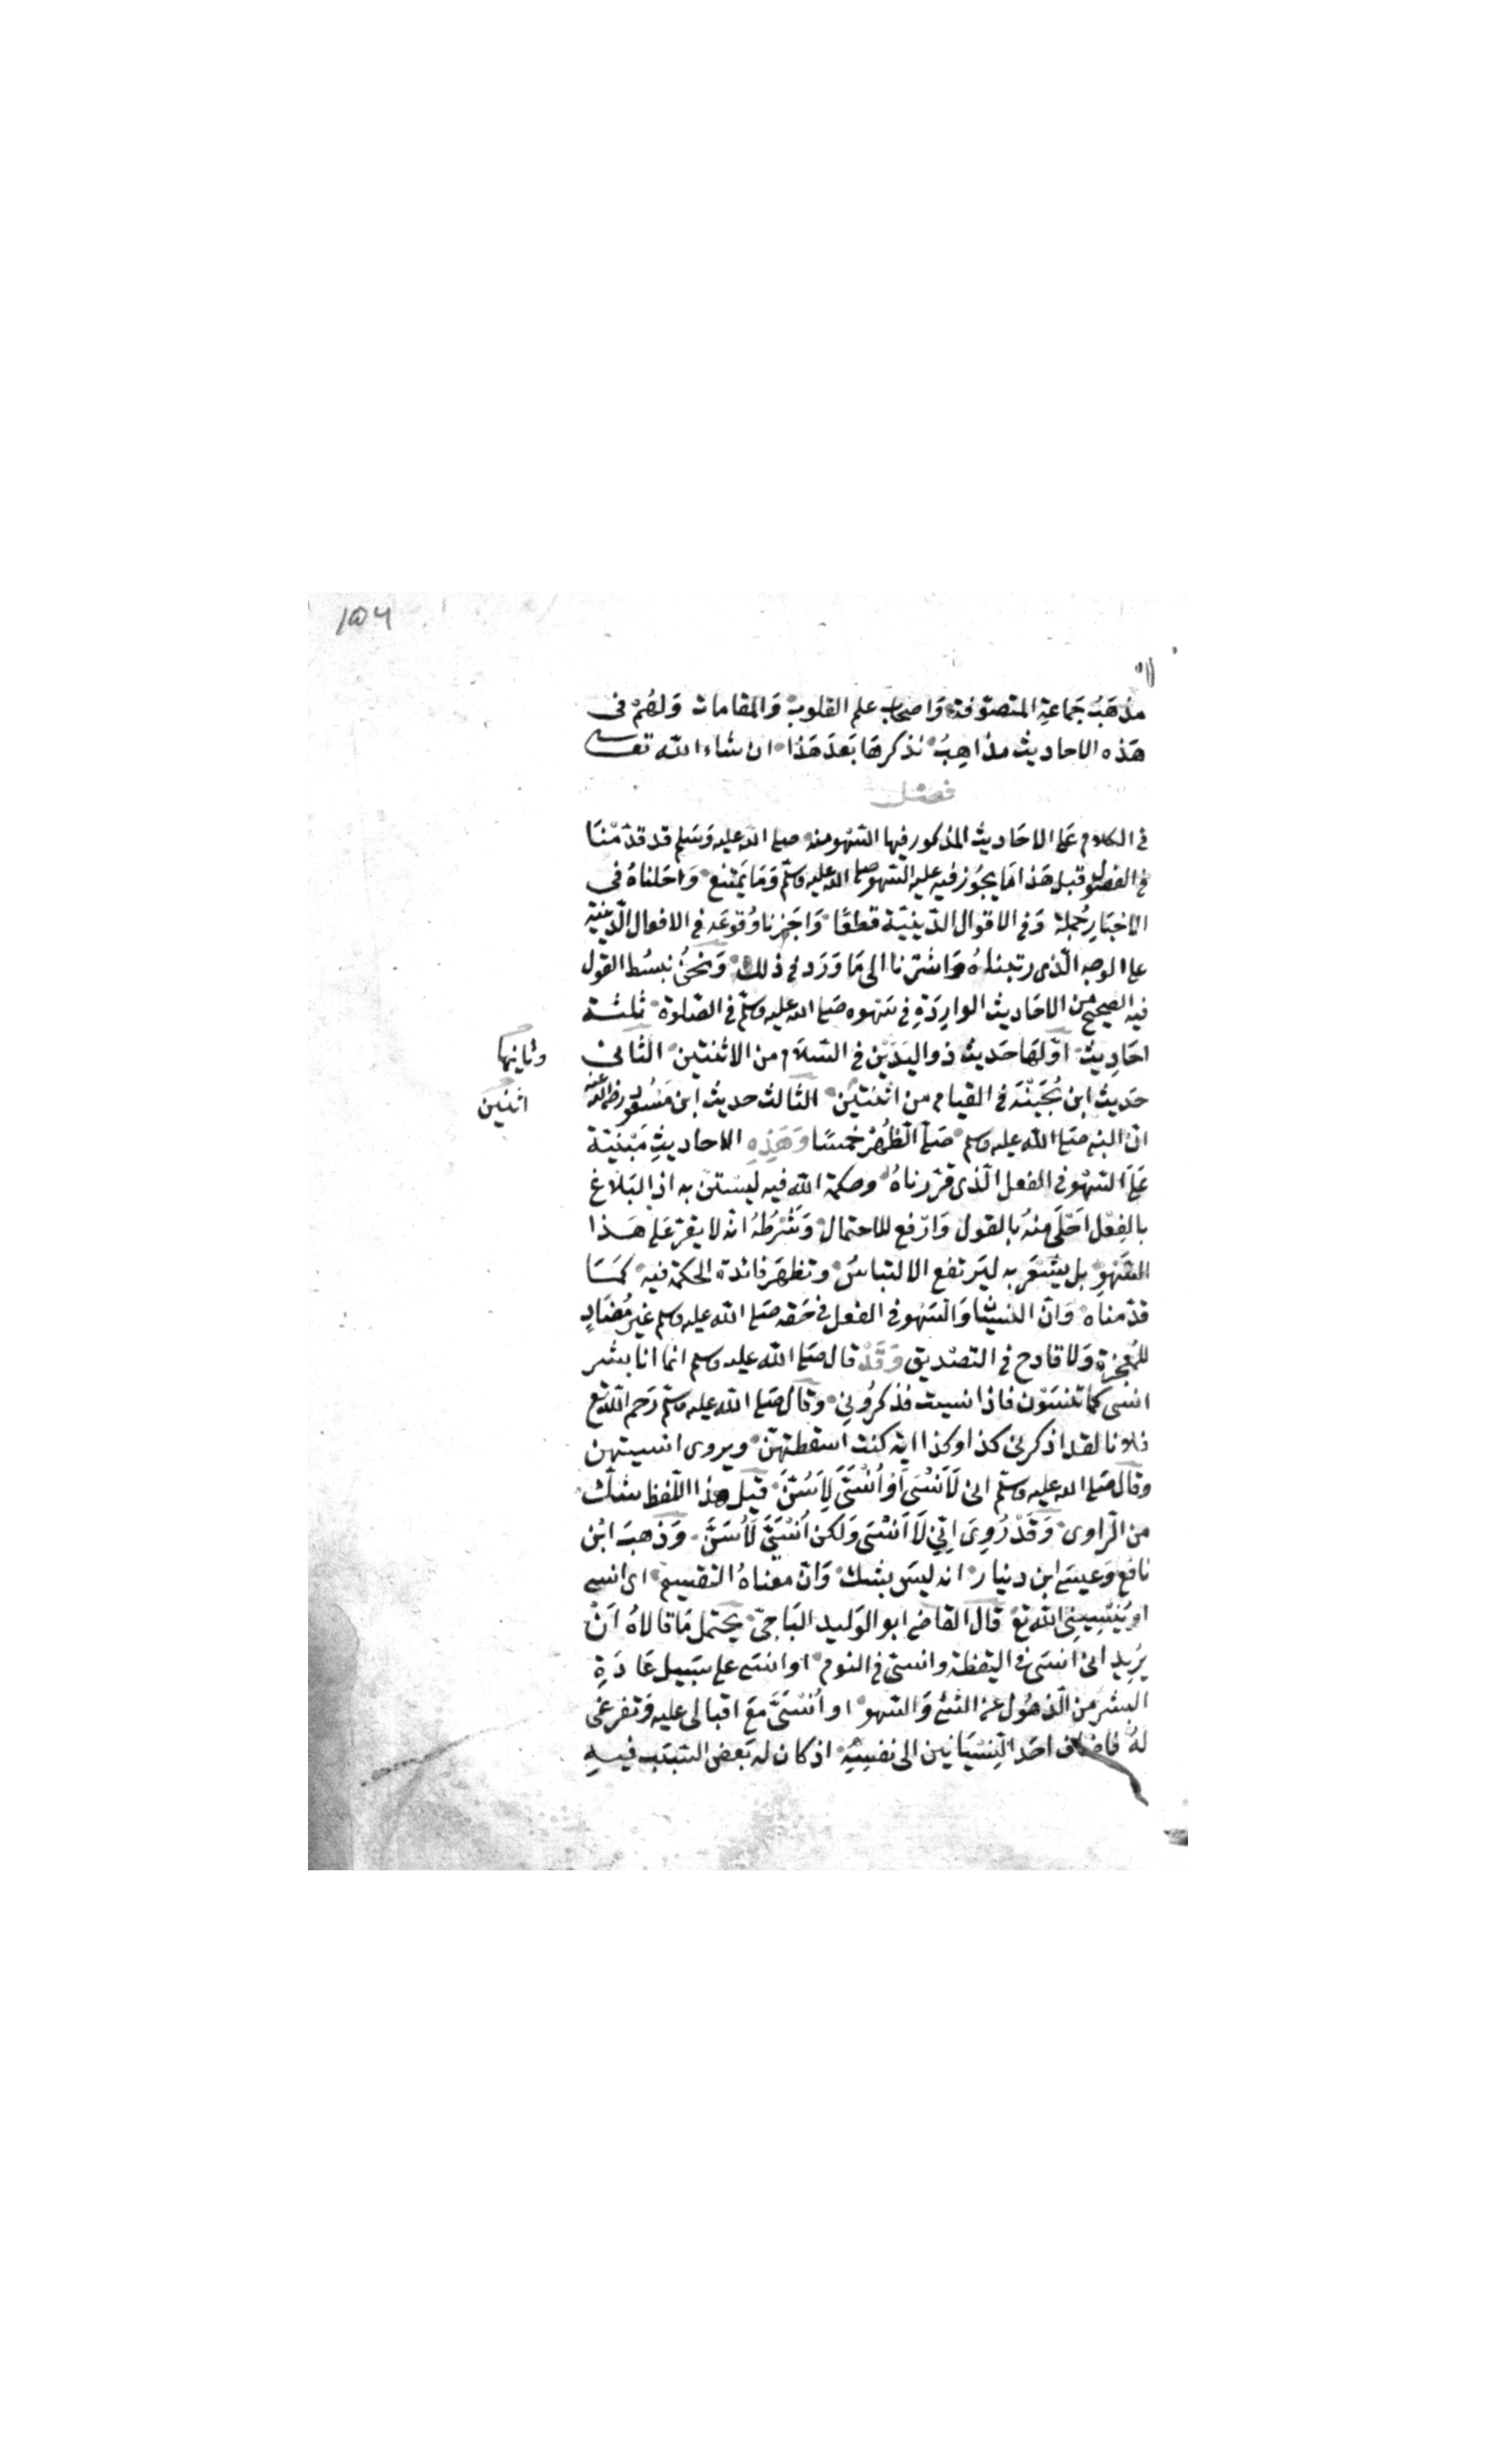 ١٥٦
مذهَبُ جَماعةِ المتصوّفة وَاصحاب علم القلوب وَالمقامات وَلهُم في
هَذه الاحاديث مذاهِبُ نذكرهَا بَعدَ هَذا ان شاء الله تعـ
فصل
في الكلام عَلى الاحَاديث المذكور فيها السَّهْو منه صلى الله عليه وَسَلم قد قدّمْنَا
في الفصول قبل هَذا مَا يجُوز فيه عليه السَّهو صلى الله عليه وسلّم وَمَا يَمتنع وَاحَلناهُ في
الاخبَارِ جُملة وَفي الاقوال الدّينيّة قطعًا وَاجَزنا وُقوعَه في الافعال الدّينيّة
على الوجه الّذى رتبناهُ وَاشرنا الى مَا وَرَد في ذلك وَنحنُ نبسُط القول
فيه الصحيح من الاحَاديث الوارِدَةِ في سَهْوه صَلى الله عليه وسلّم في الصّلوة ثلثـة
احَادِيث اوّلهَا حَديث ذو اليَدَيْن في السّلاَم من الاثنتين الثانى
وثانيها
حَديثُ ابن بُحَيْنَة في القيام من اثنتَين الثالث حديث ابن مَسْعُود رضى الله عنه
اثنين
انّ النبى صَلى الله عليه وسلم صَلّى الظُهْرَ خمسًا وَهَذِهِ الاحاديثِ مَبْنيّة
عَلى السَّهْو في الفعل الّذى قرّرناهُ وحكمة الله فيه ليستنّ به اذ البَلاغ
بالفِعْل اَجْلَى مِنهُ بالقول وَارْفع للاحتمال وَشَرْطُهُ انّه لا يقرّ عَلى هَـذا
السَّهوِ بل يشعَر به ليَرتفع الالتباسُ وتظهَر فائدة الحكمة فيه كمَـا
قدّمناه وَانّ النسيا وَالسّهْو في الفعل في حَقه صَلى الله عليه وسلم غير مُضَادٍ
للمُعجزة وَلا قادح في التصْديق وَقَدْ قال صَلى الله عليه وسلم انما انا بشر
انسى كما تنسَوْن فاذا نسيت فذكرُوني وقال صَلى الله عليه وسلّم رَحم الله تع
فلانا لقد اذكرنى كذا وكذا اية كنت اسقطتهنّ ويروى انسيتهن
وقال صَلى الله عليه وسلّم انى لاَنْسَى اَوْ اُنَسَّى لِاَسُنَّ قيل هذا اللّفظ شك
من الرّاوى وَقَدْ رُوِىَ اِنِّي لاَ اَنْسَى وَلكن اُنَسَّى لِاَسُنَّ وَذهبَ ابْن
نافع وَعيسى ابن دنيار انه ليسَ بشك وَانّ معْناهُ التقسيم اى انسى
او يُنَسِّينِى الله تع قال القاضى ابو الوَليد البَاجىّ يحتمل مَا قالاهُ اَنْ
يُريد انى انسَى في اليقظة وانسى في النوم او انسى على سَبيل عَادَةِ
البَشَر من الذهُول عن الشئ وَالسّهو او اُنَسَّى مَعَ اقبالى عليه وَتفرغى
لهُ فاضاف احَد النِّسْيَانين الى نفسِه اذ كان له بَعض السَّبَب فيـهِ